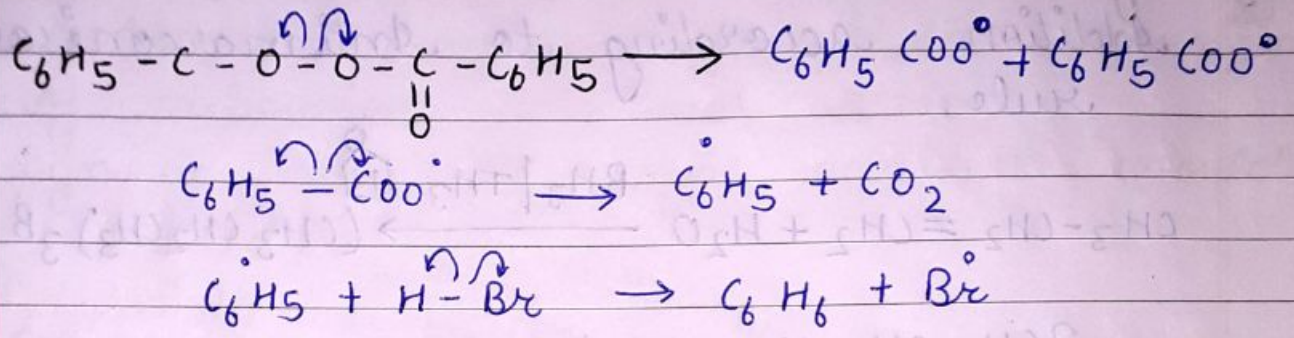 C₆H₅ - C - O - O - C - C₆H₅ ⟶ C₆H₅ COO° + C₆H₅ COO°
||
O
C₆H₅ - COO˙ ⟶ Ċ₆H₅ + CO₂
Ċ₆H₅ + H - Br → C₆H₆ + Br°